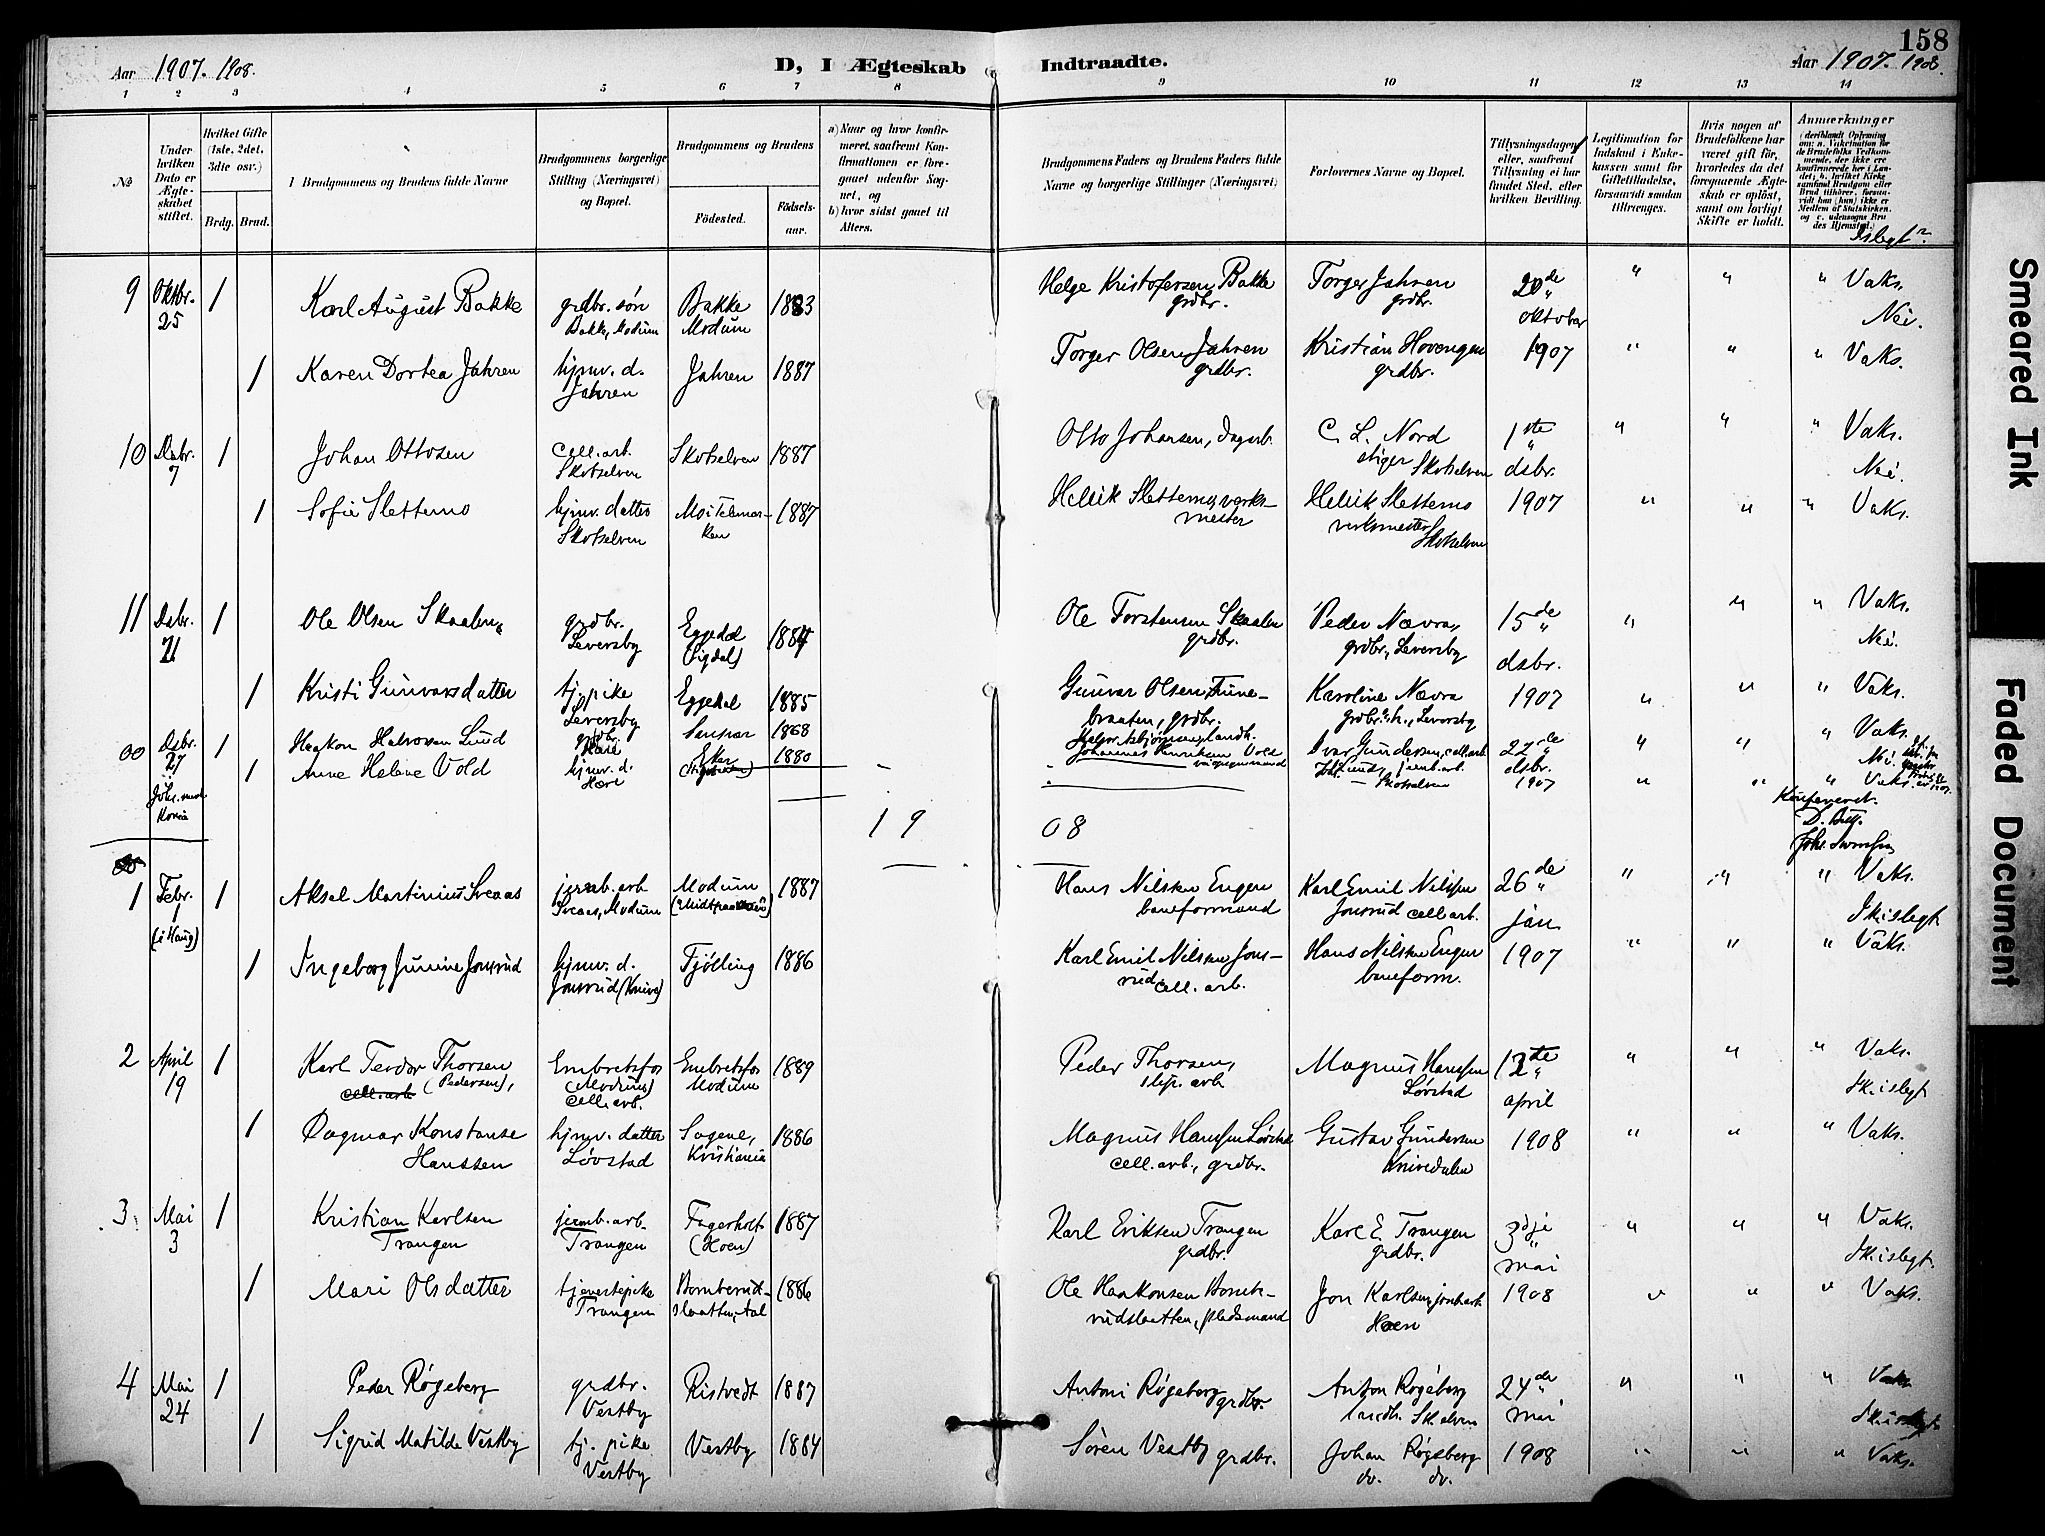 158
Aar 1907. 1908.
D, I Ægteskab Indtraadte.
Aar 1907. 1908.
1 2 3 4 5 6 7 8 9 10 11 12 13 14
No
Under hvilken Dato er Ægteskabet stiftet.
Hvilket Gifte (1ste, 2det, 3die osv.)
Brdg. Brud.
Brudgommens og Brudens fulde Navne
Brudgommens borgerlige Stilling (Næringsvei) og Bopæl.
Brudgommens og Brudens
Födested.
Födsels-aar.
a) Naar og hvor konfirmeret, saafremt Konfirmationen er foregaaet udenfor Sognet, og
b) hvor sidst gaaet til Alters.
Brudgommens Faders og Brudens Faders fulde Navne og borgerlige Stillinger (Næringsvei)
Forlovernes Navne og Bopæl.
Tillysningsdagen eller, saafremt Tillysning ei har fundet Sted, efter hvilken Bevilling.
Legitimation for Indskud i Enkekassen samt for Giftetilladelse, forsaavidt saadan tiltrænges.
Hvis nogen af Brudefolkene har været gift før, hvorledes da det foregaaende Ægteskab er opløst, samt om lovligt Skifte er holdt.
Anmærkninger
Islegt?
9 Oktbr. 25 1 Karl August Bakke grdbr. søn Bakke, Modum Bakke Modum 1883 Helge Kristofersen Bakke grdbr. Torger Jahren grdbr. 20de oktober " " " Vaks. Nei.
1 Karen Dortea Jahren hjmv. d. Jahren Jahren 1887 Torger Olsen Jahren grdbr. Kristian Hovengen grdbr. 1907 " " " Vaks.
10 Dsbr. 7 1 Johan Ottosen cell. arb. Skotselven Skotselven 1887 Otto Johansen, dagarb. C. L. Nord stiger Skotselven 1ste dsbr. " " " Vaks. Nei.
1 Sofie Sletterno hjmv. datter Skotselven 1887 mester verksmester Skotselven 1907 " " " Vaks.
11 Dsbr. 21 1 Ole Olsen Skaalen grdbr. Leversby Eggedal (Sigdal) 1884 Ole Torstensen Skaalen grdbr. Peder Nævra, grdbr., Leversby 15de dsbr. " " " Vaks. Nei.
1 Kristi Gunvarsdatter tj. pike Leversby Eggedal 1885 Gunvar Olsen Tunebraaten, grdbr. Karoline Nævra Leversby 1907 " " " Vaks.
00 Dsbr. 27 1 Haakon Halvorsen Lund grdbr. 1868 Ivar Gundersen, cell. arb. 22de dsbr. " " " Vaks. Nei.
1 Anne Helene Vold hjmv. d. Eker 1880 Johannes Henriksen Vold Lund, Skotselven 1907 " " " Vaks.
Konfereret.
19 08
1 Febr. 1 (i Haug) 1 Aksel Martinius Sveaas jernb. arb Sveaas, Modum Modum 1887 Hans Nilsen Engen baneformand Karl Emil Nilsen Jonsrud cell. arb. 26de jan. " " " Vaks. Ikislegt
1 Ingeborg Junine Jonsrud hjmv. d. Jonsrud (Knive) Tjölling 1886 Karl Emil Nilsen Jonsrud cell. arb. Hans Nilsen Engen baneform. 1907 " " " Vaks.
2 April 19 1 Karl Teodor Thorsen (Pedersen), cell. arb Embretsfos (Modum) cell. arb. Embretsfos Modum 1889 Peder Thorsen, slip. arb. Magnus Hanssen Løvstad 12te april " " " Vaks. Ikislegt
1 Dagmar Konstanse Hanssen hjmv. datter Løvstad Sagene, Kristiania 1886 Magnus Hanssen Løvstad cell. arb., grdbr. Gustav Gundersen Knivedalen 1908 " " " Vaks.
3 Mai 3 1 Kristian Karlsen Trangen jernb. arb. Trangen Fagerholt (Hoen) 1887 Karl Eriksen Trangen grdbr. Karl E. Trangen grdbr. 3dje mai " " " Vaks. Ikislegt.
1 Mari Olsdatter tjenestepike Trangen 1886 Ole Haakonsen pladsmand Jon Karlsen, jernb. arb Hoen 1908 " " " Vaks.
4 Mai 24 1 Peder Røgeberg grdbr. Vestby Ristvedt 1887 Antoni Røgeberg grdbr. Anton Røgeberg landh. Sk.elven 24de mai " " " Vaks Ikislegt
1 Sigrid Matilde Vestby tj. pike Vestby Vestby 1884 Søren Vestby grdbr. Johan Røgeberg do. do. 1908 " " " Vaks.
Smeared Ink
Faded Document